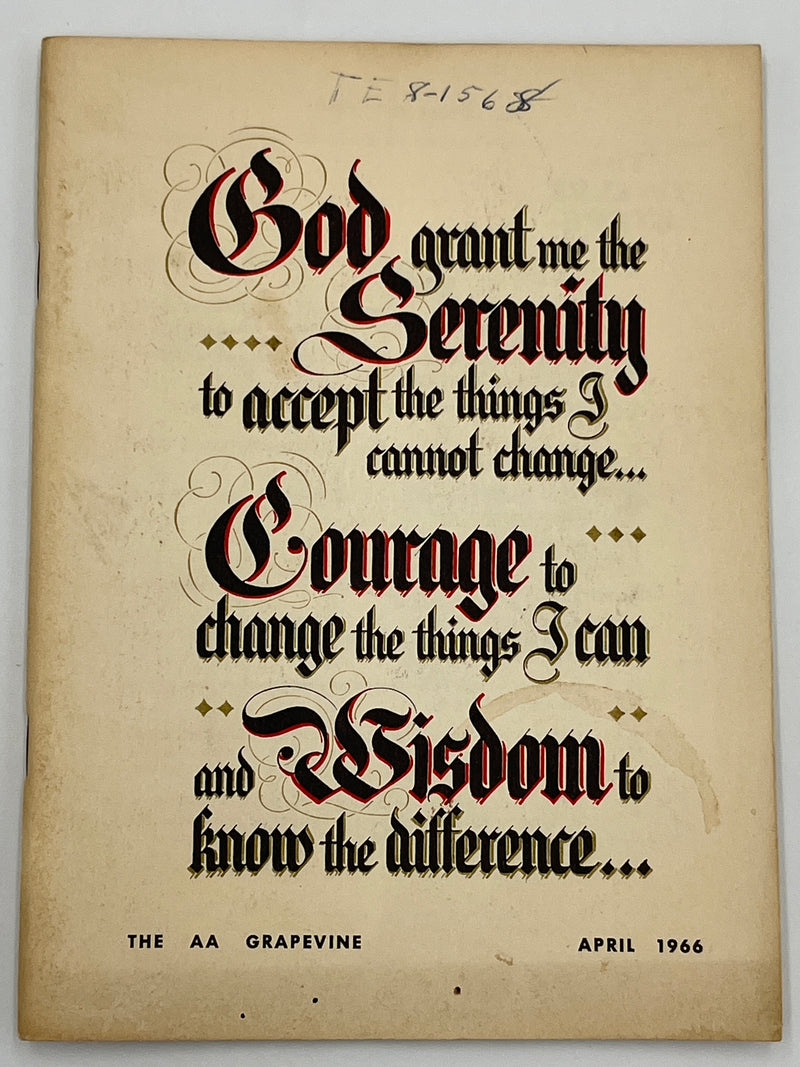 TE 8-1568
God grant me the
Serenity
to accept the things I
cannot change...
Courage to
change the things I can
and Wisdom to
know the difference...
THE AA GRAPEVINE APRIL 1966